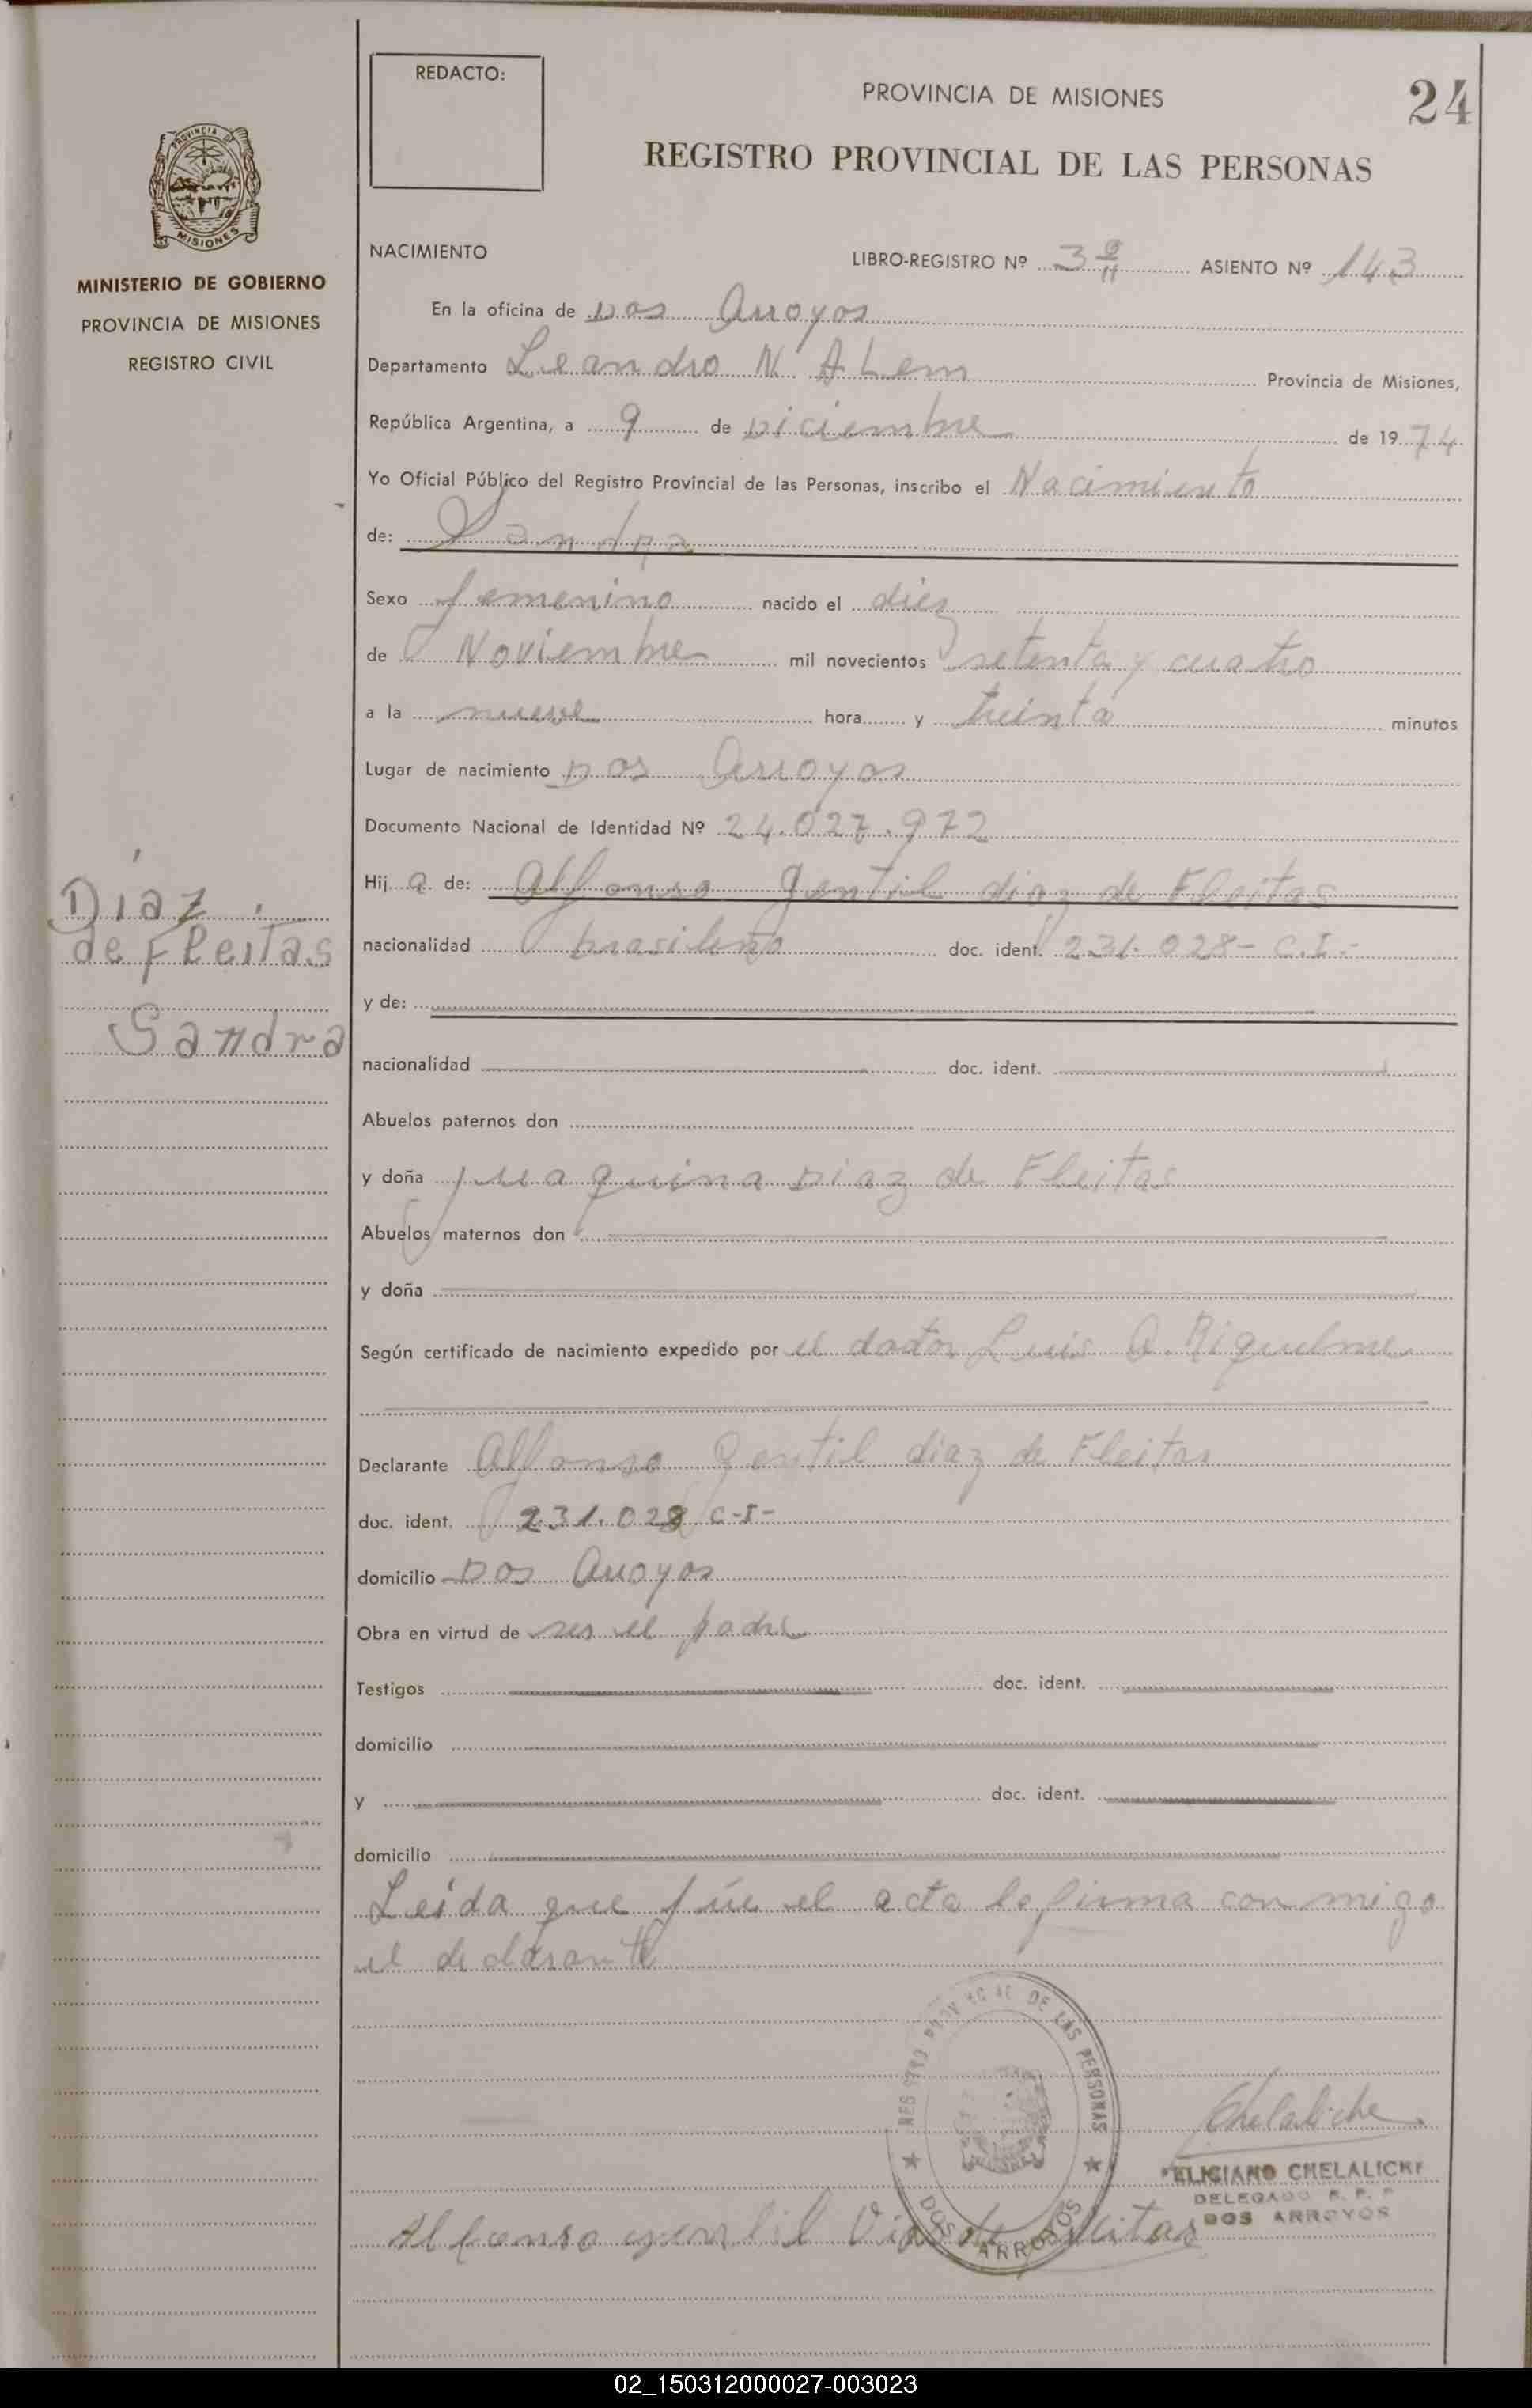 REDACTO:
PROVINCIA DE MISIONES
24
REGISTRO PROVINCIAL DE LAS PERSONAS
PROVINCIA DE
MISIONES
MINISTERIO DE GOBIERNO
PROVINCIA DE MISIONES
REGISTRO CIVIL
NACIMIENTO LIBRO-REGISTRO Nº 3 ASIENTO Nº 143
En la oficina de Dos Arroyos
Departamento Leandro N. ALem Provincia de Misiones,
República Argentina, a 9 de Diciembre de 1974
Yo Oficial Público del Registro Provincial de las Personas, inscribo el Nacimiento
de: Sandra
Sexo femenino nacido el diez
de Noviembre mil novecientos setenta y cuatro
a la nueve hora y treinta minutos
Lugar de nacimiento Dos Arroyos
Documento Nacional de Identidad Nº 24.027.972
Hij a de: Alfonso Gentil diaz de Fleitas
Díaz
de Fleitas
Sandra
nacionalidad brasileño doc. ident. 231.028- C.I.-
y de:
nacionalidad doc. ident.
Abuelos paternos don
y doña Juaquina Diaz de Fleitas
Abuelos maternos don
y doña
Según certificado de nacimiento expedido por el doctor Luis A. Riquelme
Declarante Alfonso Gentil diaz de Fleitas
doc. ident. 231.028 C-I-
domicilio Dos Arroyos
Obra en virtud de ser el padre
Testigos doc. ident.
domicilio
y doc. ident.
domicilio
Leída que fúe el acta la firma con migo
el declarante
REGISTRO PROVINCIAL DE LAS PERSONAS
DOS ARROYOS
Chelaliche
FELICIANO CHELALICHE
DELEGADO R. P. P
DOS ARROYOS
Alfonso gentil Diaz de Fleitas
02_150312000027-003023